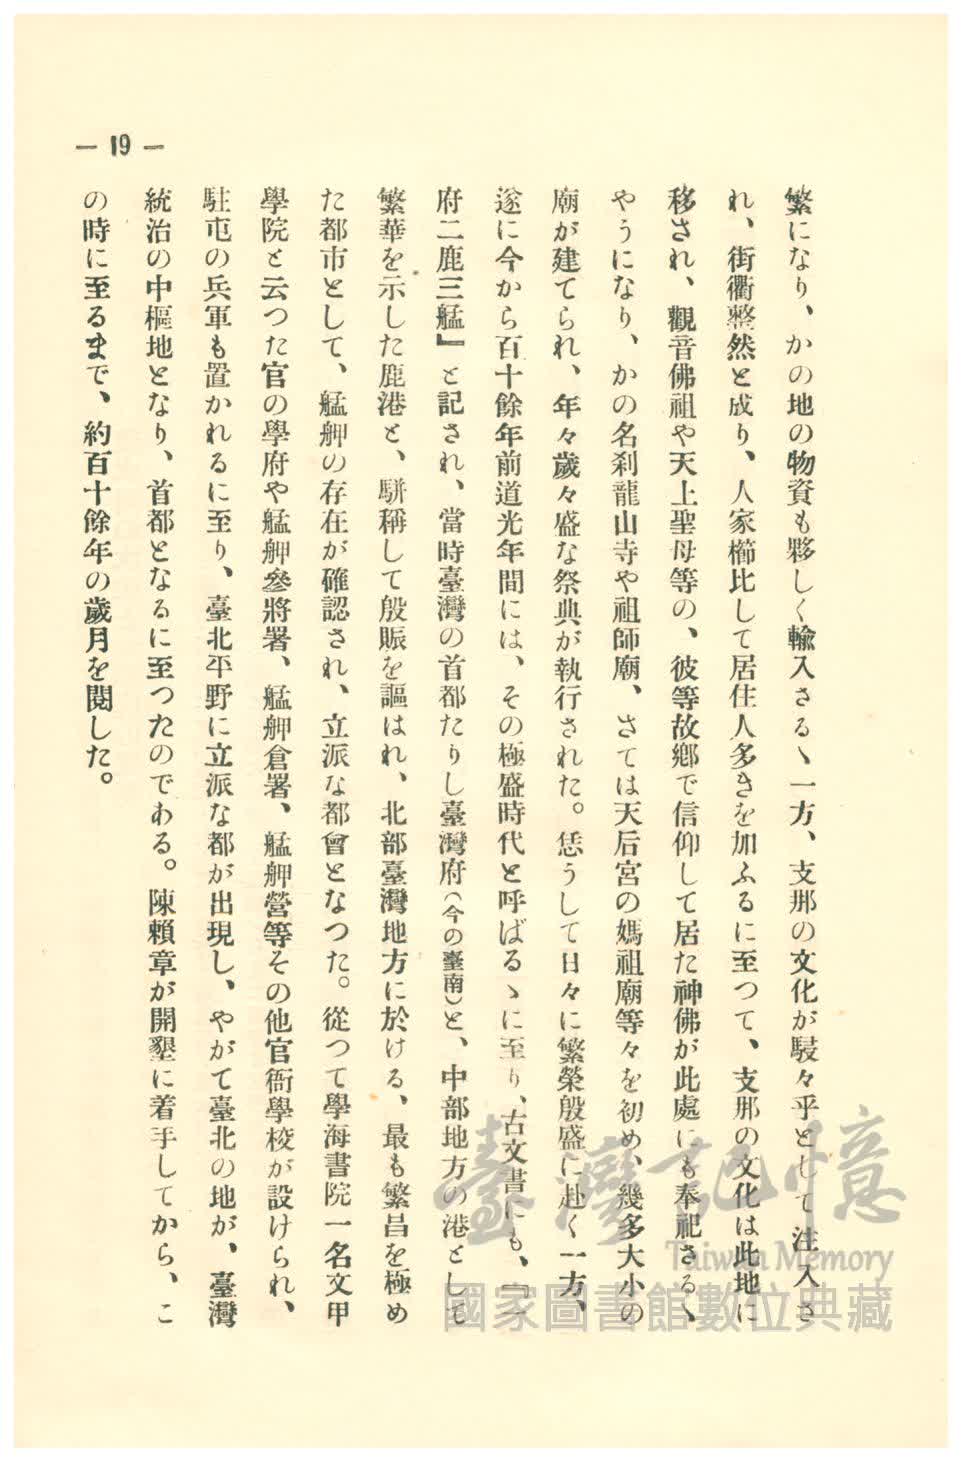 — 19 —
繁になり、かの地の物資も夥しく輸入さるゝ一方、支那の文化が駸々乎として注入さ
れ、街衢整然と成り、人家櫛比して居住人多きを加ふるに至つて、支那の文化は此地に
移され、觀音佛祖や天上聖母等の、彼等故鄕で信仰して居た神佛が此處にも奉祀さるゝ
やうになり、かの名刹龍山寺や祖師廟、さては天后宮の媽祖廟等々を初め、幾多大小の
廟が建てられ、年々歲々盛な祭典が執行された。恁うして日々に繁榮殷盛に赴く一方、
遂に今から百十餘年前道光年間には、その極盛時代と呼ばるゝに至り、古文書にも、『一
府二鹿三艋』と記され、當時臺灣の首都たりし臺灣府(今の臺南)と、中部地方の港として
繁華を示した鹿港と、駢稱して殷賑を謳はれ、北部臺灣地方に於ける、最も繁昌を極め
た都市として、艋舺の存在が確認され、立派な都會となつた。從つて學海書院一名文甲
學院と云つた官の學府や艋舺參將署、艋舺倉署、艋舺營等その他官衙學校が設けられ、
駐屯の兵軍も置かれるに至り、臺北平野に立派な都が出現し、やがて臺北の地が、臺灣
統治の中樞地となり、首都となるに至つたのである。陳賴章が開墾に着手してから、こ
の時に至るまで、約百十餘年の歲月を閱した。
臺灣記憶
Taiwan Memory
國家圖書館數位典藏